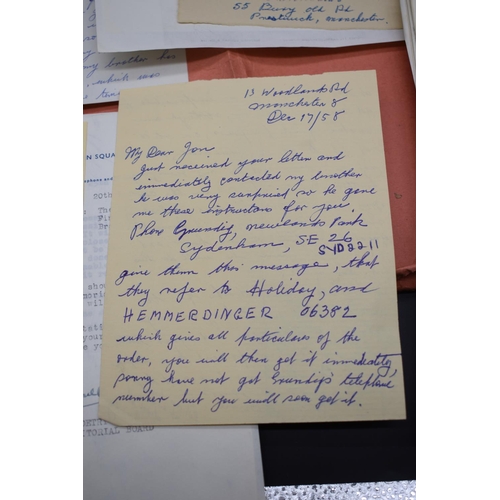 55 Bury old Rd
Prestwich, Manchester.
my brother has
which was
N SQUA
13 Woodlands Rd
Manchester 8
Dec 17/58
My Dear Jon
Just received your letter and
immediately contacted my brother
he was very surprised so he gave
me these instructors for you.
Phone Grundig, Newlands Park
Sydenham, SE 26
SYD 2211
give them this message, that
they refer to Holiday, and
HEMMERDINGER 06382
which gives all particulars of the
order, you will then get it immediately,
sorry have not got Grundig's telephone
number but you will soon get it.
TORIAL BOARD